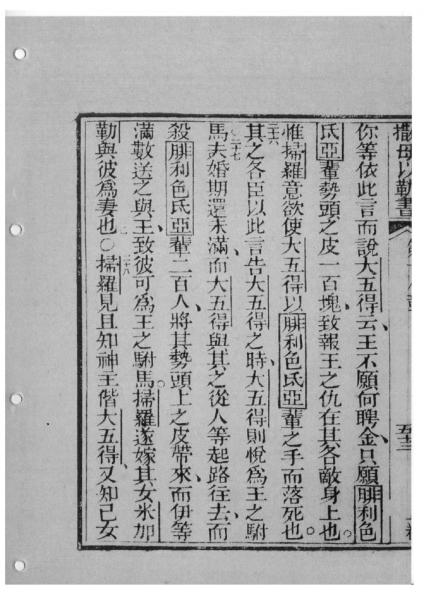 撒母以勒書
你等依此言而說大五得云王不願何聘金只願腓利色
氏亞輩勢頭之皮一百塊致報王之仇在其各敵身上也。
惟掃羅意欲使大五得以腓利色氏亞輩之手而落死也。
二十六
其之各臣以此言告大五得之時、大五得則悅為王之駙
二十七
馬夫婚期還未滿、而大五得與其之從人等起路往去、而
殺腓利色氏亞輩二百人、將其勢頭上之皮帶來、而伊等
滿數送之與王、致彼可為王之駙馬。掃羅遂嫁其女米加
勒與彼為妻也○
二十八
掃羅見且知神主偕大五得、又知己女